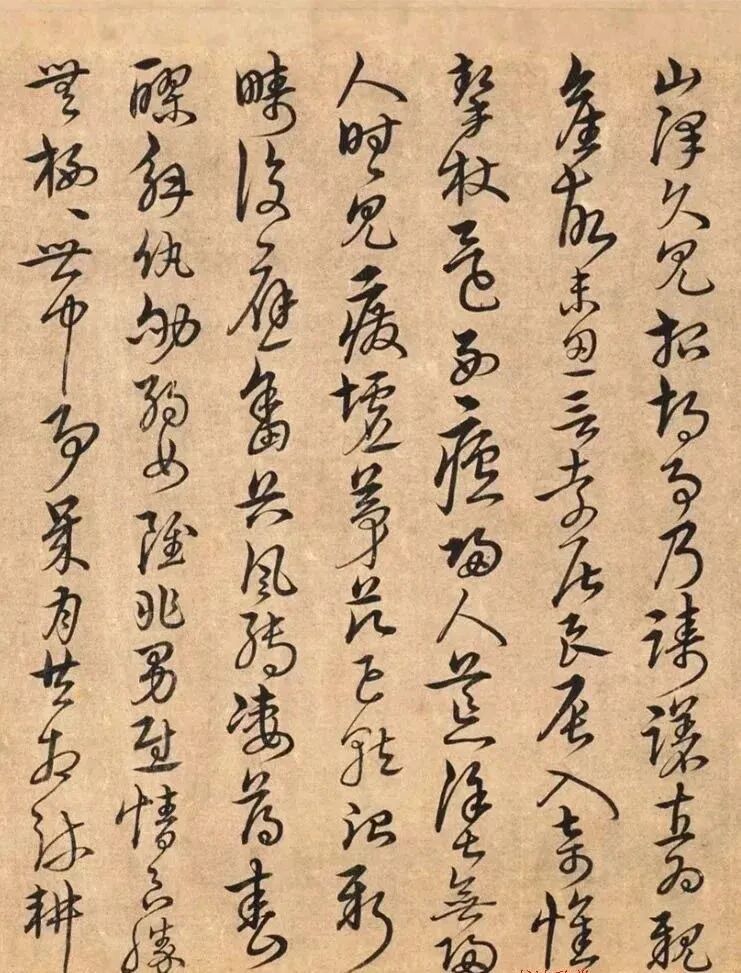 山澤久見招胡事乃躊躇直為親
舊故未忍言索居良辰入奇懷
挈杖還西廬歸人荒塗無歸
人時〻見廢墟茅茨已就治新
疇復應畬谷風轉淒薄春
醪解飢劬弱女雖非男慰情良勝
無栖〻世中事歲月共相疏耕